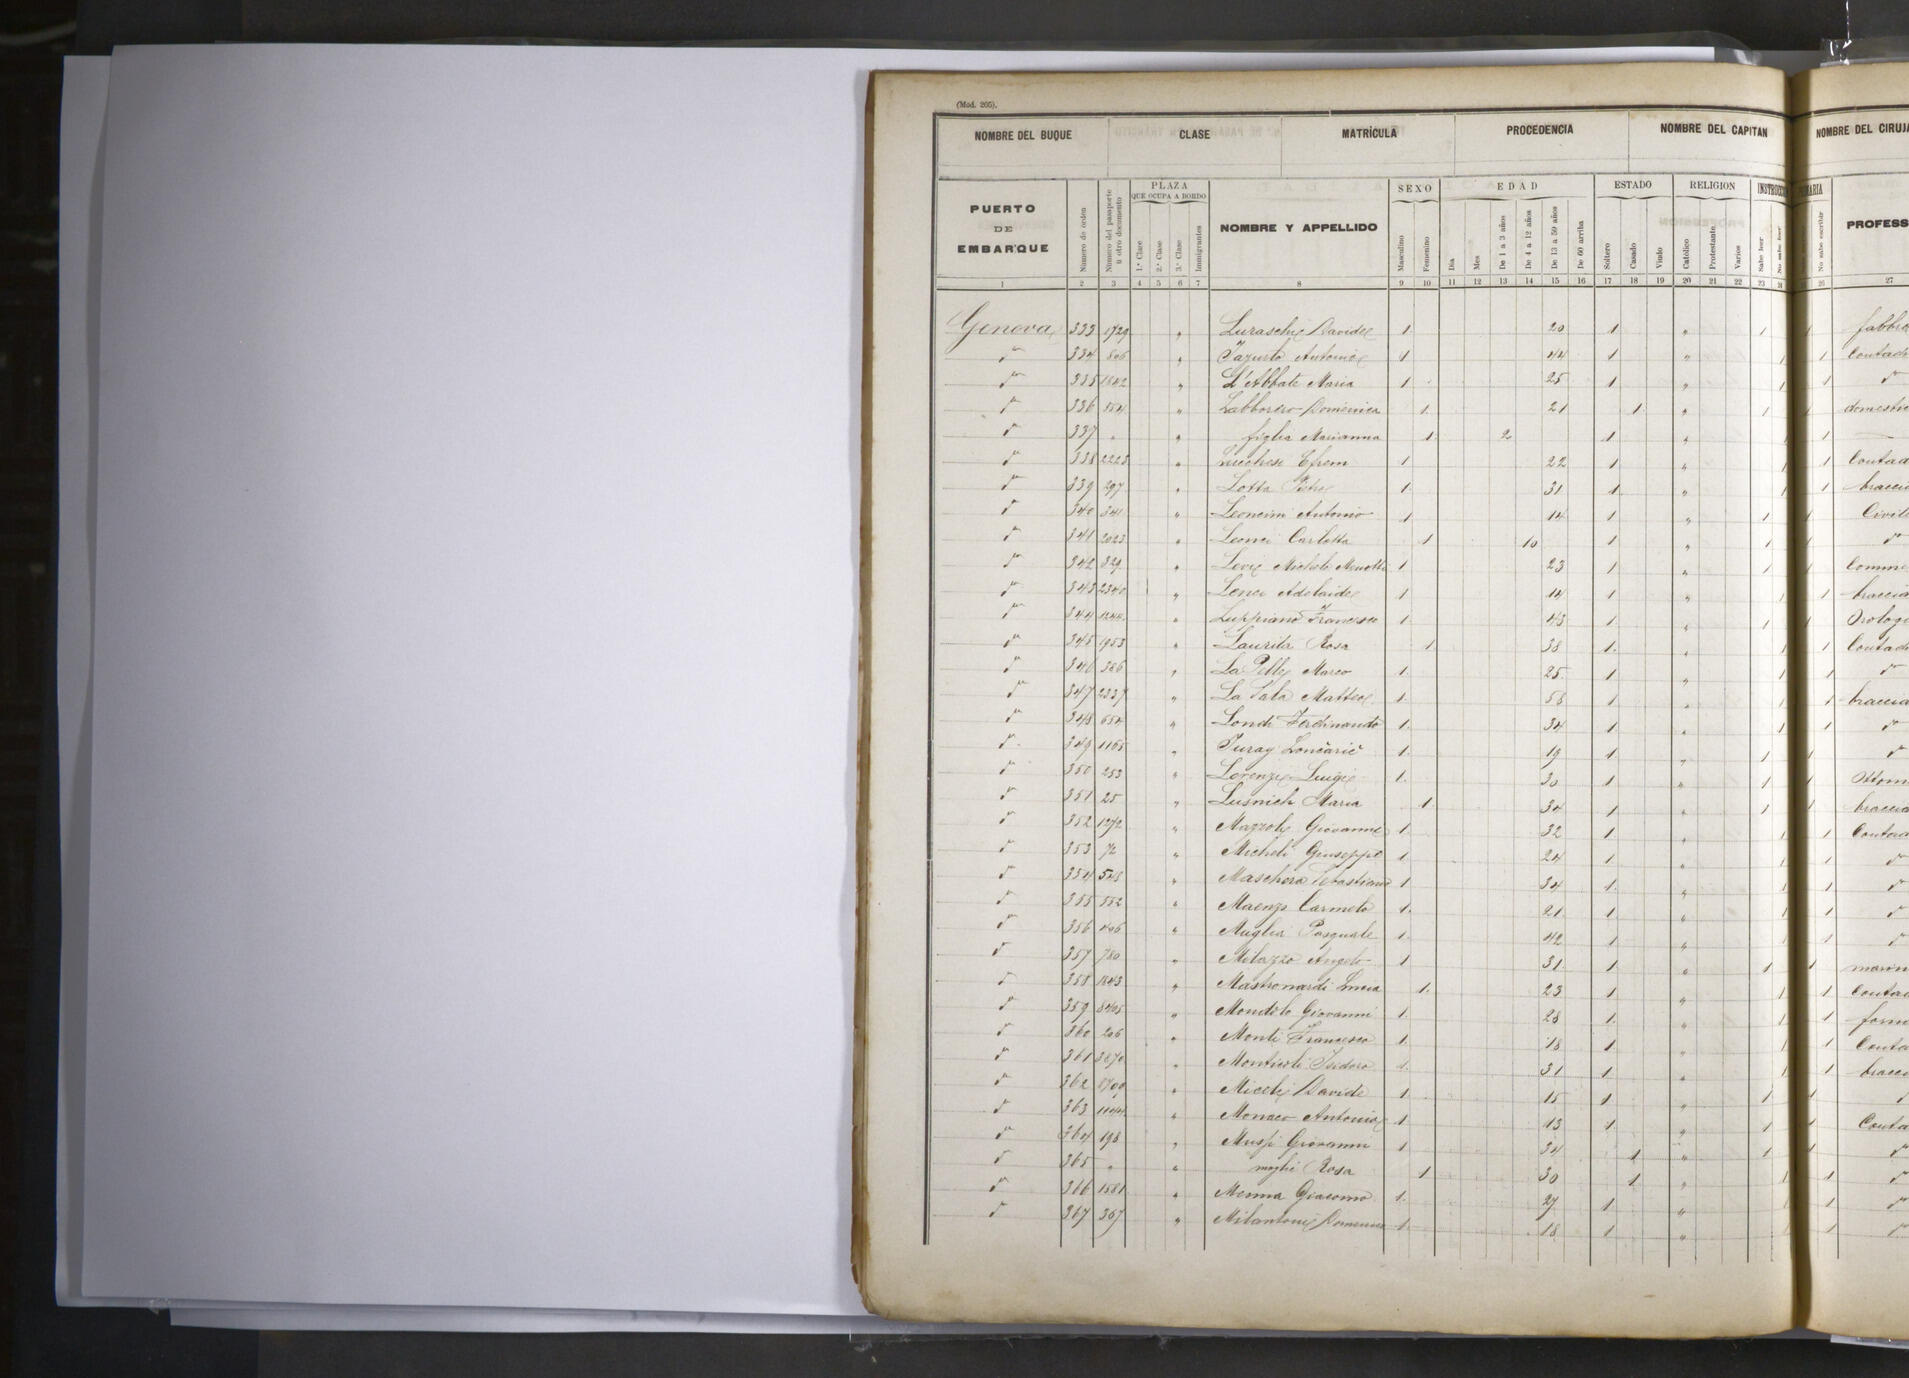 (Mod. 205).
NOMBRE DEL BUQUE CLASE MATRÍCULA PROCEDENCIA NOMBRE DEL CAPITAN NOMBRE DEL CIRUJA
PUERTO DE EMBARQUE Número de orden Número del pasaporte u otro documento PLAZA QUE OCUPA A BORDO 1.ª Clase 2.ª Clase 3.ª Clase Inmigrantes NOMBRE Y APPELLIDO SEXO Masculino Femenino EDAD Día Mes De 1 a 3 años De 4 a 12 años De 13 a 59 años De 60 arriba ESTADO Soltero Casado Viudo RELIGION Católico Protestante Varios Sabe leer No sabe leer No sabe escribir PROFESS
1 2 3 4 5 6 7 8 9 10 11 12 13 14 15 16 17 18 19 20 21 22 23 26 27
Genova 333 1729 " Luraschi Davide 1 20 1 " 1 1 fabbro
334 806 " Antonio 1 44 1 " 1 1 Contad
335 1842 " L'Abbate Maria 1 25 1 " 1 1
336 " Domenica 1 21 1 " 1 1 domestic
337 " " figlia Marianna 1 2 1 " 1
338 2223 " Efrem 1 22 1 " 1 1 Contad
339 297 " Lotta Pietro 1 31 1 " 1 1 braccia
340 341 " Leoncini Antonio 1 14 1 " 1 1 Civile
341 2023 " Leonci Carlotta 1 10 1 " 1 1
342 329 " Levi Michele Menotti 1 23 1 " 1 Comme
343 2340 " Lenci Adelaide 1 14 1 " 1 1 braccia
344 " Luppiano Francesco 1 43 1 " 1 1 Orolog
345 1953 " Laurita Rosa 1 38 1 " 1 1 Contad
346 386 " La Pelle Marco 1 25 1 " 1 1
347 2337 " La Sala Matteo 1 58 1 " 1 1 braccia
348 654 " Londi Ferdinando 1 34 1 " 1 1
349 1165 " Juray Lončarič 1 19 1 " 1 1
350 253 " Lorenzi Luigi 1 30 1 " 1 1
351 25 " Lusnich Maria 1 34 1 " 1 1 braccia
352 1272 " Mazzoli Giovanni 1 32 1 " 1 1 Contad
353 72 " Micheli Giuseppe 1 24 1 " 1 1
354 543 " Maschera Sebastiano 1 34 1 " 1 1
355 552 " Maenza Carmelo 1 21 1 " 1 1
356 406 " Muglia Pasquale 1 42 1 " 1 1
357 780 " Milazzo Angelo 1 31 1 " 1 1 marin
358 1843 " Mastronardi Lucia 1 23 1 " 1 1 Contad
359 " Mondelo Giovanni 1 28 1 " 1 1 forn
360 206 " Monti Francesco 1 18 1 " 1 1 Conta
361 3870 " Monticoli Isidoro 1 31 1 " 1 1 bracci
362 1700 " Miceli Davide 1 15 1 " 1 1
363 1144 " Monaco Antonio 1 13 1 " 1 1 Conta
364 198 " Mussi Giovanni 1 34 1 " 1 1
365 " " moglie Rosa 1 30 1 " 1 1
366 1581 " Menna Giacomo 1 27 1 " 1 1
367 367 " Milantoni Domenico 1 18 1 " 1 1